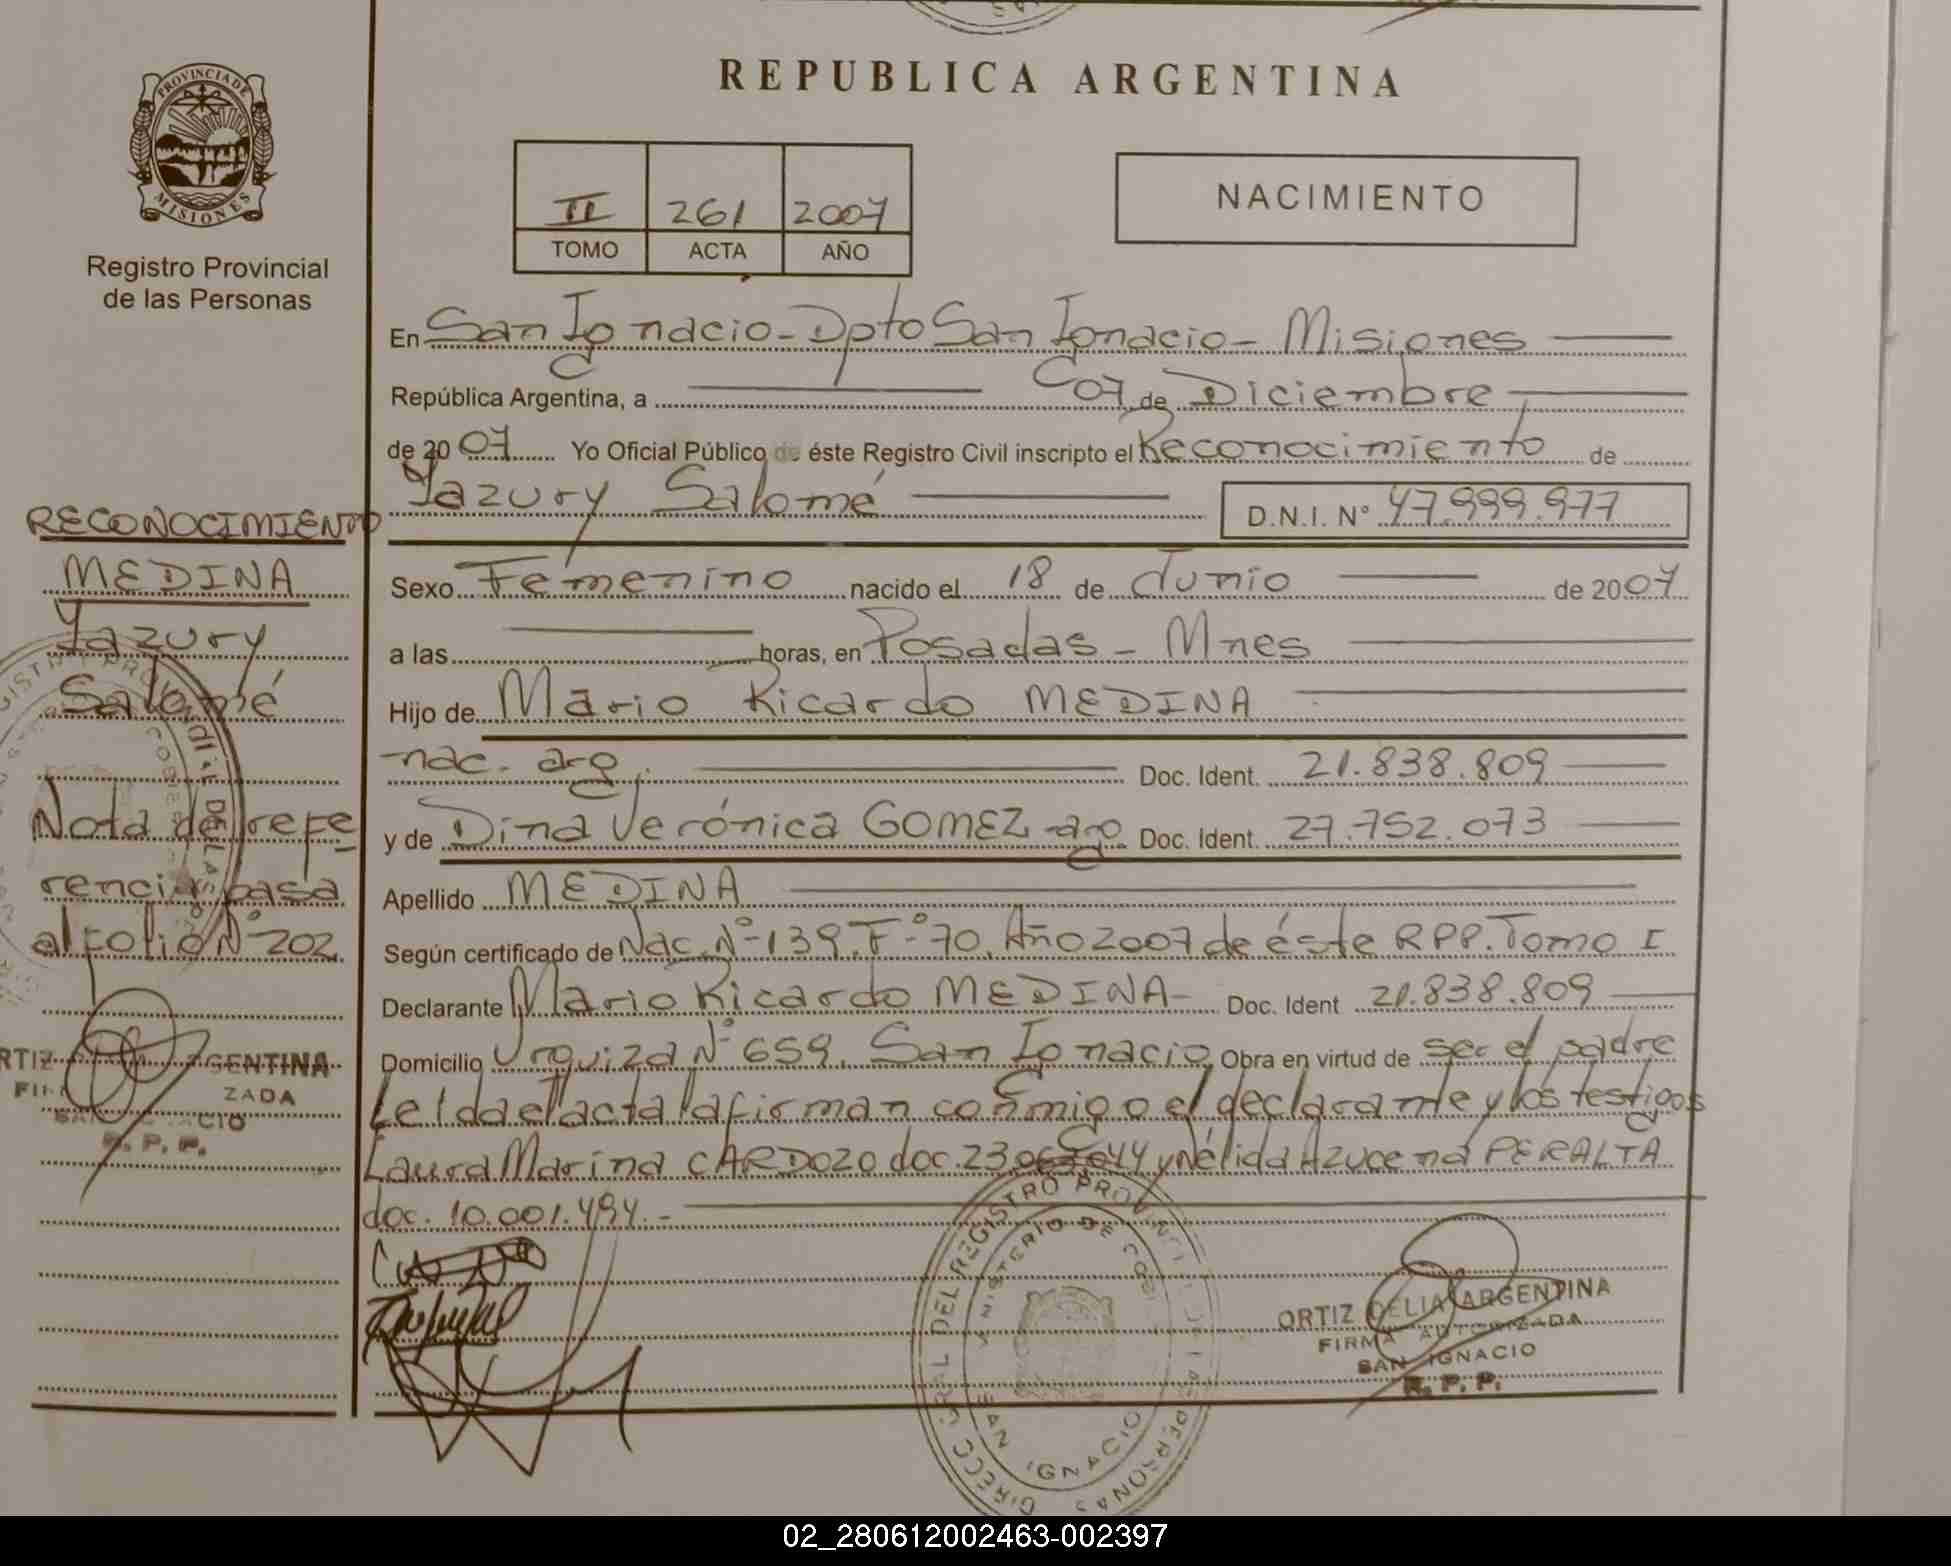 REPUBLICA ARGENTINA
PROVINCIA DE
MISIONES
Registro Provincial
de las Personas
II 261 2007
TOMO ACTA AÑO
NACIMIENTO
En San Ignacio - Dpto San Ignacio - Misiones
República Argentina, a 07 de Diciembre
de 2007 Yo Oficial Público de éste Registro Civil inscripto el Reconocimiento de
Yazury Salomé D.N.I. N° 47.999.977
Sexo Femenino nacido el 18 de Junio de 2007
a las horas, en Posadas - Mnes
Hijo de Mario Ricardo MEDINA
nac. arg. Doc. Ident. 21.838.809
y de Dina Verónica GOMEZ arg Doc. Ident. 27.752.073
Apellido MEDINA
Según certificado de Nac. N° 139. F° 70. Año 2007 de éste RPP. Tomo I
Declarante Mario Ricardo MEDINA - Doc. Ident 21.838.809
Domicilio Urquiza N° 659. San Ignacio Obra en virtud de ser el padre
Leída el acta la firman conmigo el declarante y los testigos
Laura Marina CARDOZO doc. y Nélida Azucena PERALTA
doc. 10.001.494.-
RECONOCIMIENTO
MEDINA
Yazury
Salomé
Nota de refe
rencia pasa
al folio N° 202
RTIZ GENTINA
ZADA
CIO
R. P. P.
DIRECC GRAL DEL REGISTRO PROVINCIAL DE LAS PERSONAS
MINISTERIO DE GOB
SAN IGNACIO
ORTIZ DELIA ARGENTINA
FIRMA AUTORIZADA
SAN IGNACIO
R. P. P.
02_280612002463-002397